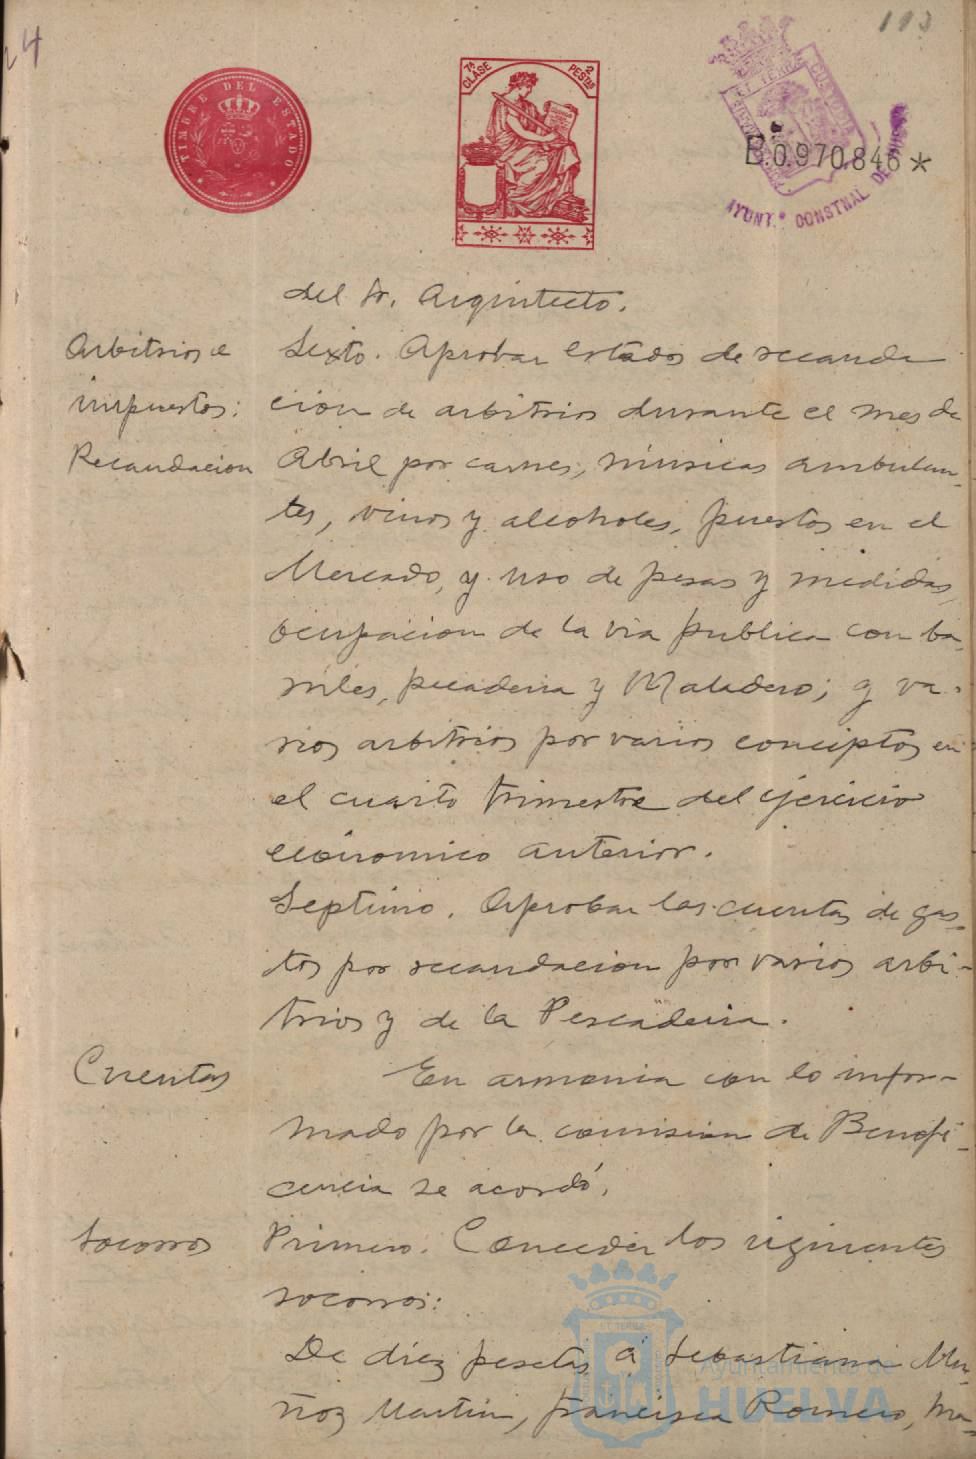 24
113
TIMBRE DEL ESTADO
7ª CLASE
2 PESTAS
B.0.970.846*
AYUNT.º CONSTNAL DE HUELVA
del Sr. Arquitecto.
Arbitrios e
impuestos:
Recaudacion
Sexto. Aprobar estados de recauda
cion de arbitrios durante el mes de
Abril por carnes, músicas ambulan-
tes, vinos y alcoholes, puestos en el
Mercado, y uso de pesas y medidas,
ocupacion de la via publica con ba-
rriles, pescaderia y Matadero; y va-
rios arbitrios por varios conceptos en
el cuarto trimestre del ejercicio
económico anterior.
Septimo. Aprobar las cuentas de gas-
tos por recaudacion por varios arbi-
trios y de la Pescaderia.
Cuentas
En armonia con lo infor-
mado por la comision de Benefi-
cencia se acordó,
Socorros
Primero. Conceder los siguientes
socorros:
De diez pesetas á Sebastiana Mu-
ñoz Martin, Francisca Romero, Ma-
Ayuntamiento de
HUELVA